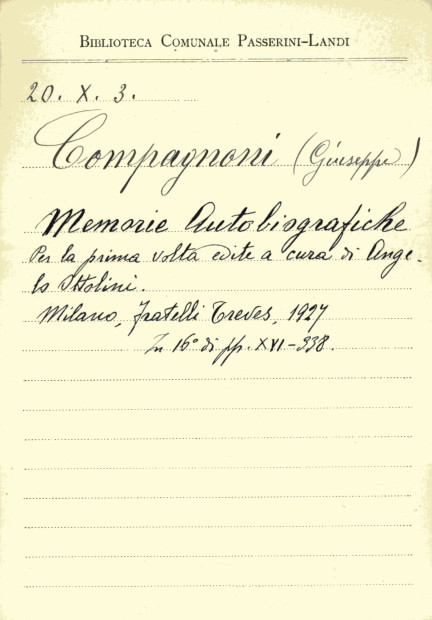 BIBLIOTECA COMUNALE PASSERINI-LANDI
20. X. 3.
Compagnoni (Giuseppe)
Memorie Autobiografiche
Per la prima volta edite a cura di Ange-
lo Ottolini.
Milano, Fratelli Treves, 1927
In 16° di pp. XVI-338.